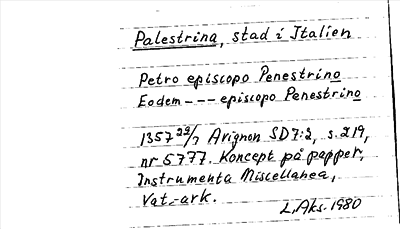 Palestrina, stad i Italien
Petro episcopo Penestrino
Eodem --- episcopo Penestrino
1357 22/7 Avignon SD7:2, s. 219,
nr 5777. Koncept på papper,
Instrumenta Miscellanea,
Vat.-ark.
L. Aks. 1980